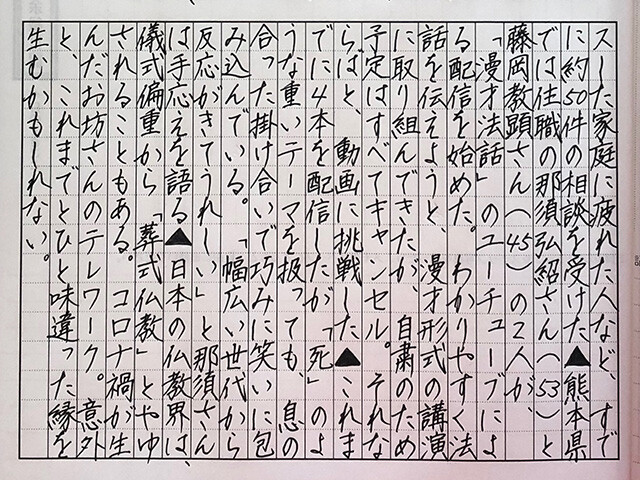 スした家庭に疲れた人など、すで
に約50件の相談を受けた▲熊本県
では住職の那須弘紹さん(53)と
藤岡教顕さん(45)の2人が、
「漫才法話」のユーチューブによ
る配信を始めた。わかりやすく法
話を伝えようと、漫才形式の講演
に取り組んできたが、自粛のため
予定はすべてキャンセル。それな
らばと、動画に挑戦した▲これま
でに4本を配信したが「死」のよ
うな重いテーマを扱っても、息の
合った掛け合いで巧みに笑いに包
み込んでいる。「幅広い世代から
反応がきてうれしい」と那須さん
は手応えを語る▲日本の仏教界は、
儀式偏重から「葬式仏教」とやゆ
されることもある。コロナ禍が生
んだお坊さんのテレワーク。意外
と、これまでとひと味違った縁を
生むかもしれない。